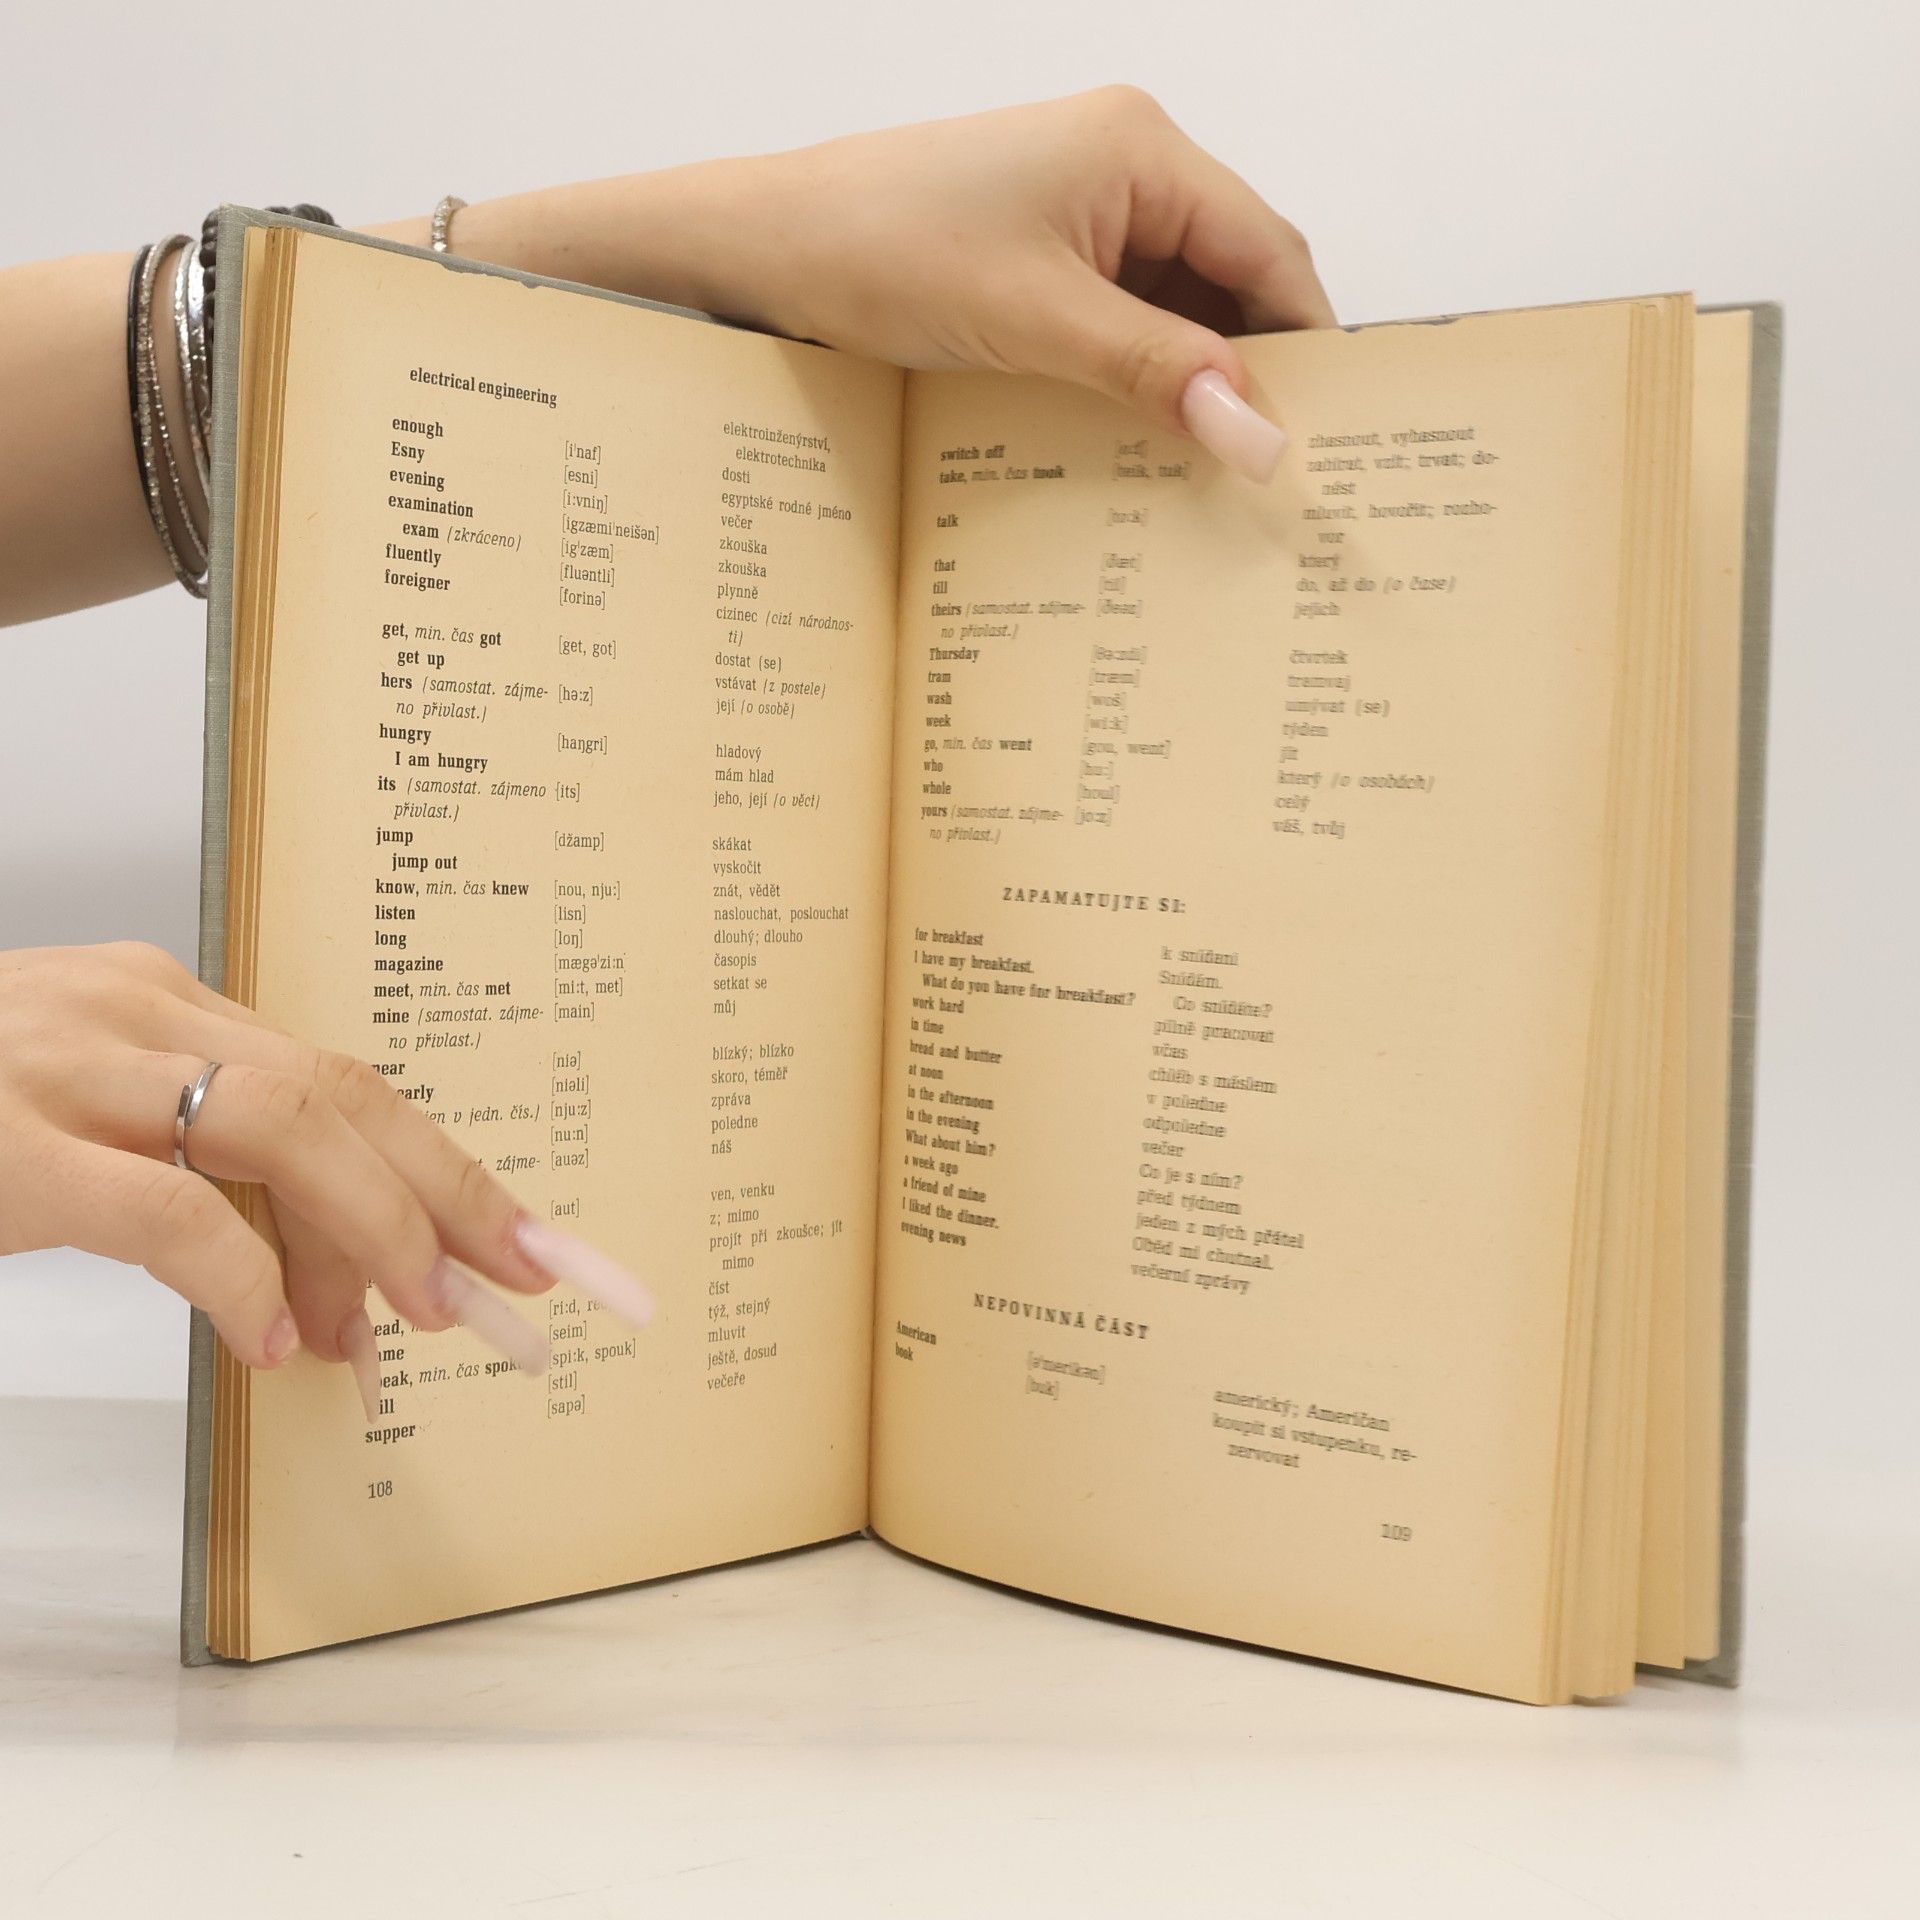 electrical engineering elektroinženýrství,
elektrotechnika
enough [iˈnaf] dosti
Esny [esni] egyptské rodné jméno
evening [i:vniŋ] večer
examination [igzæmiˈneišən] zkouška
exam (zkráceno) [igˈzæm] zkouška
fluently [fluəntli] plynně
foreigner [forinə] cizinec (cizí národnos-
ti)
get, min. čas got [get, got] dostat (se)
get up vstávat (z postele)
hers (samostat. zájme- [hə:z] její (o osobě)
no přivlast.)
hungry [haŋgri] hladový
I am hungry mám hlad
its (samostat. zájmeno [its] jeho, její (o věci)
přivlast.)
jump [džamp] skákat
jump out vyskočit
know, min. čas knew [nou, nju:] znát, vědět
listen [lisn] naslouchat, poslouchat
long [loŋ] dlouhý; dlouho
magazine [mægəˈzi:n] časopis
meet, min. čas met [mi:t, met] setkat se
mine (samostat. zájme- [main] můj
no přivlast.)
near [niə] blízký; blízko
early [niəli] skoro, téměř
jen v jedn. čís.) [nju:z] zpráva
[nu:n] poledne
zájme- [auəz] náš
[aut] ven, venku
z; mimo
projít při zkoušce; jít
mimo
ead, [ri:d, číst
ame [seim] týž, stejný
eak, min. čas [spi:k, spouk] mluvit
ill [stil] ještě, dosud
supper [sapə] večeře
108
switch off [o:f] zhasnout, vyhasnout
take, min. čas took [teik, tuk] zabírat, vzít; trvat; do-
nést
talk [to:k] mluvit, hovořit; rozho-
vor
that [ðæt] který
till [til] do, až do (o čase)
theirs (samostat. zájme- [ðeəz] jejich
no přivlast.)
Thursday [θə:zdi] čtvrtek
tram [træm] tramvaj
wash [woš] umývat (se)
week [wi:k] týden
go, min. čas went [gou, went] jít
who [hu:] který (o osobách)
whole [houl] celý
yours (samostat. zájme- [jo:z] váš, tvůj
no přivlast.)
ZAPAMATUJTE SI:
for breakfast k snídani
I have my breakfast. Snídám.
What do you have for breakfast? Co snídáte?
work hard pilně pracovat
in time včas
bread and butter chléb s máslem
at noon v poledne
in the afternoon odpoledne
in the evening večer
What about him? Co je s ním?
a week ago před týdnem
a friend of mine jeden z mých přátel
I liked the dinner. Oběd mi chutnal.
evening news večerní zprávy
NEPOVINNÁ ČÁST
American [əˈmerikən] americký; Američan
book [buk] koupit si vstupenku, re-
zervovat
109